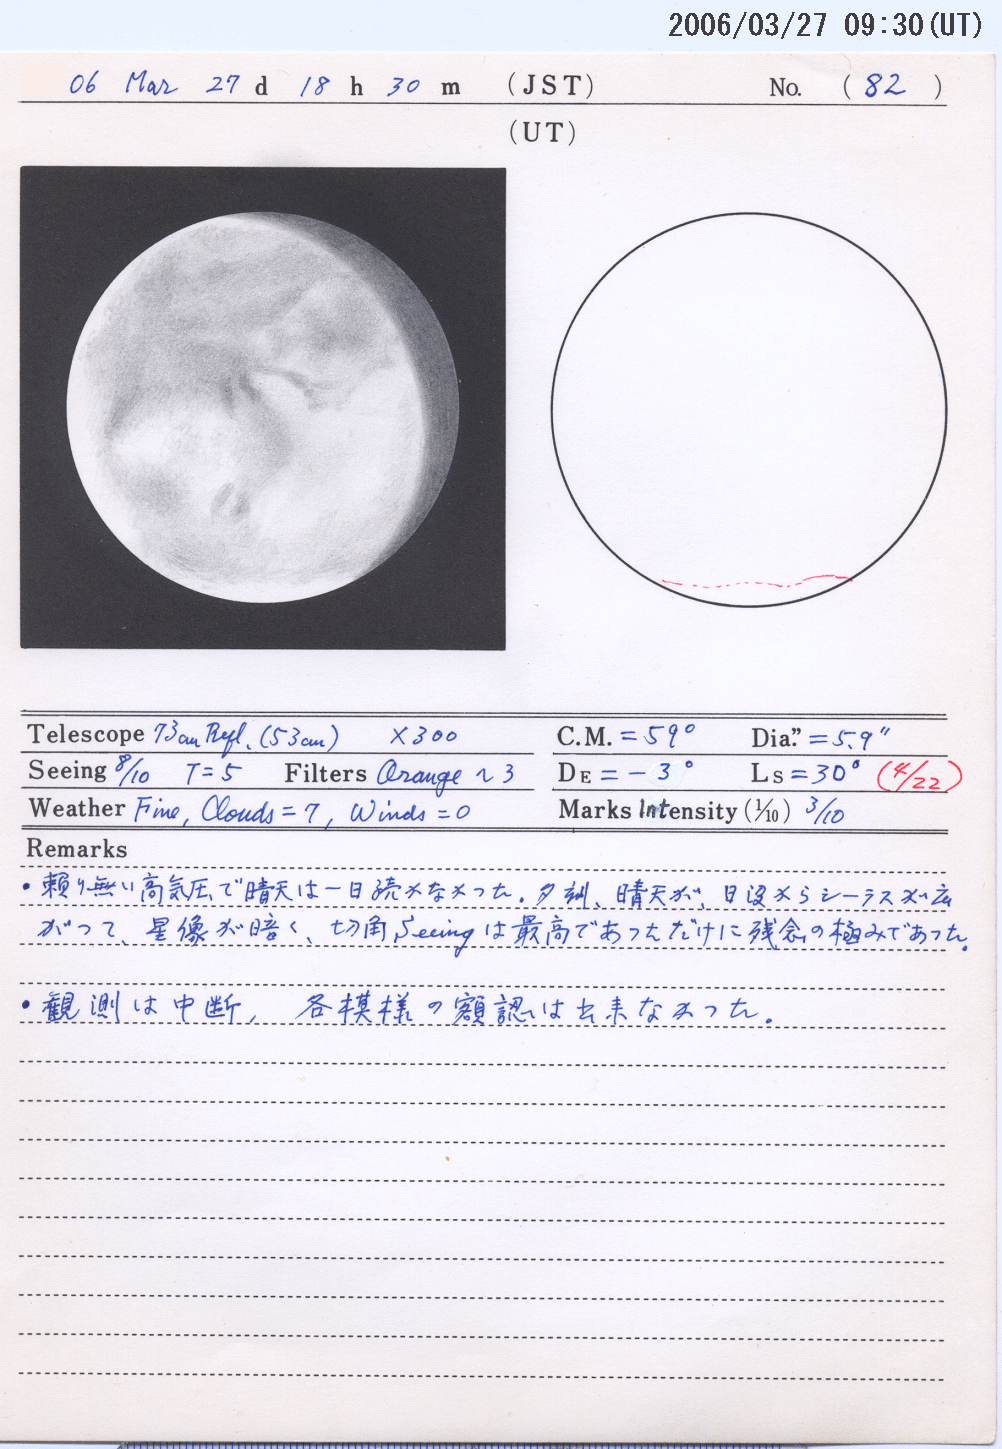 2006/03/27 09:30(UT)
06 Mar 27 d 18 h 30 m (JST) No. (82)
(UT)
Telescope 73cm Refl. (53cm) ×300 C.M. = 59° Dia." = 5.9"
Seeing 8/10 T=5 Filters Orange ~3 DE = -3° Ls = 30° (4/22)
Weather Fine, Clouds=7, Winds=0 Marks Intensity (1/10) 3/10
Remarks
・頼り無い高気圧で晴天は一日続かなかった。夕刻、晴天が、日没からシーラスが広
がって、星像が暗く、切角Seeingは最高であっただけに残念の極みであった。
・観測は中断, 各模様の額認は出来なかった。